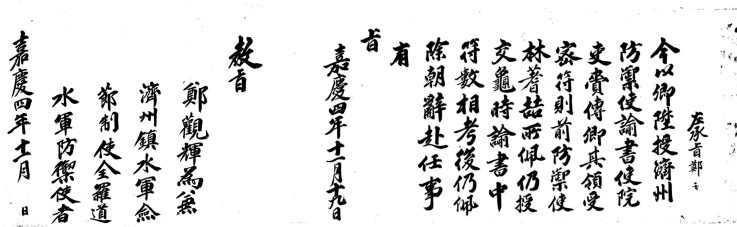 左承旨鄭
今以卿陞授濟州
防禦使諭書使院
吏賫傳卿其領受
密符則前防禦使
林蓍喆所佩仍授
交龜時諭書中
符數相考後仍佩
除朝辭赴任事
有
旨
嘉慶四年十一月十九日
教旨
鄭觀輝為兼
濟州鎮水軍僉
節制使全羅道
水軍防禦使者
嘉慶四年十一月 日